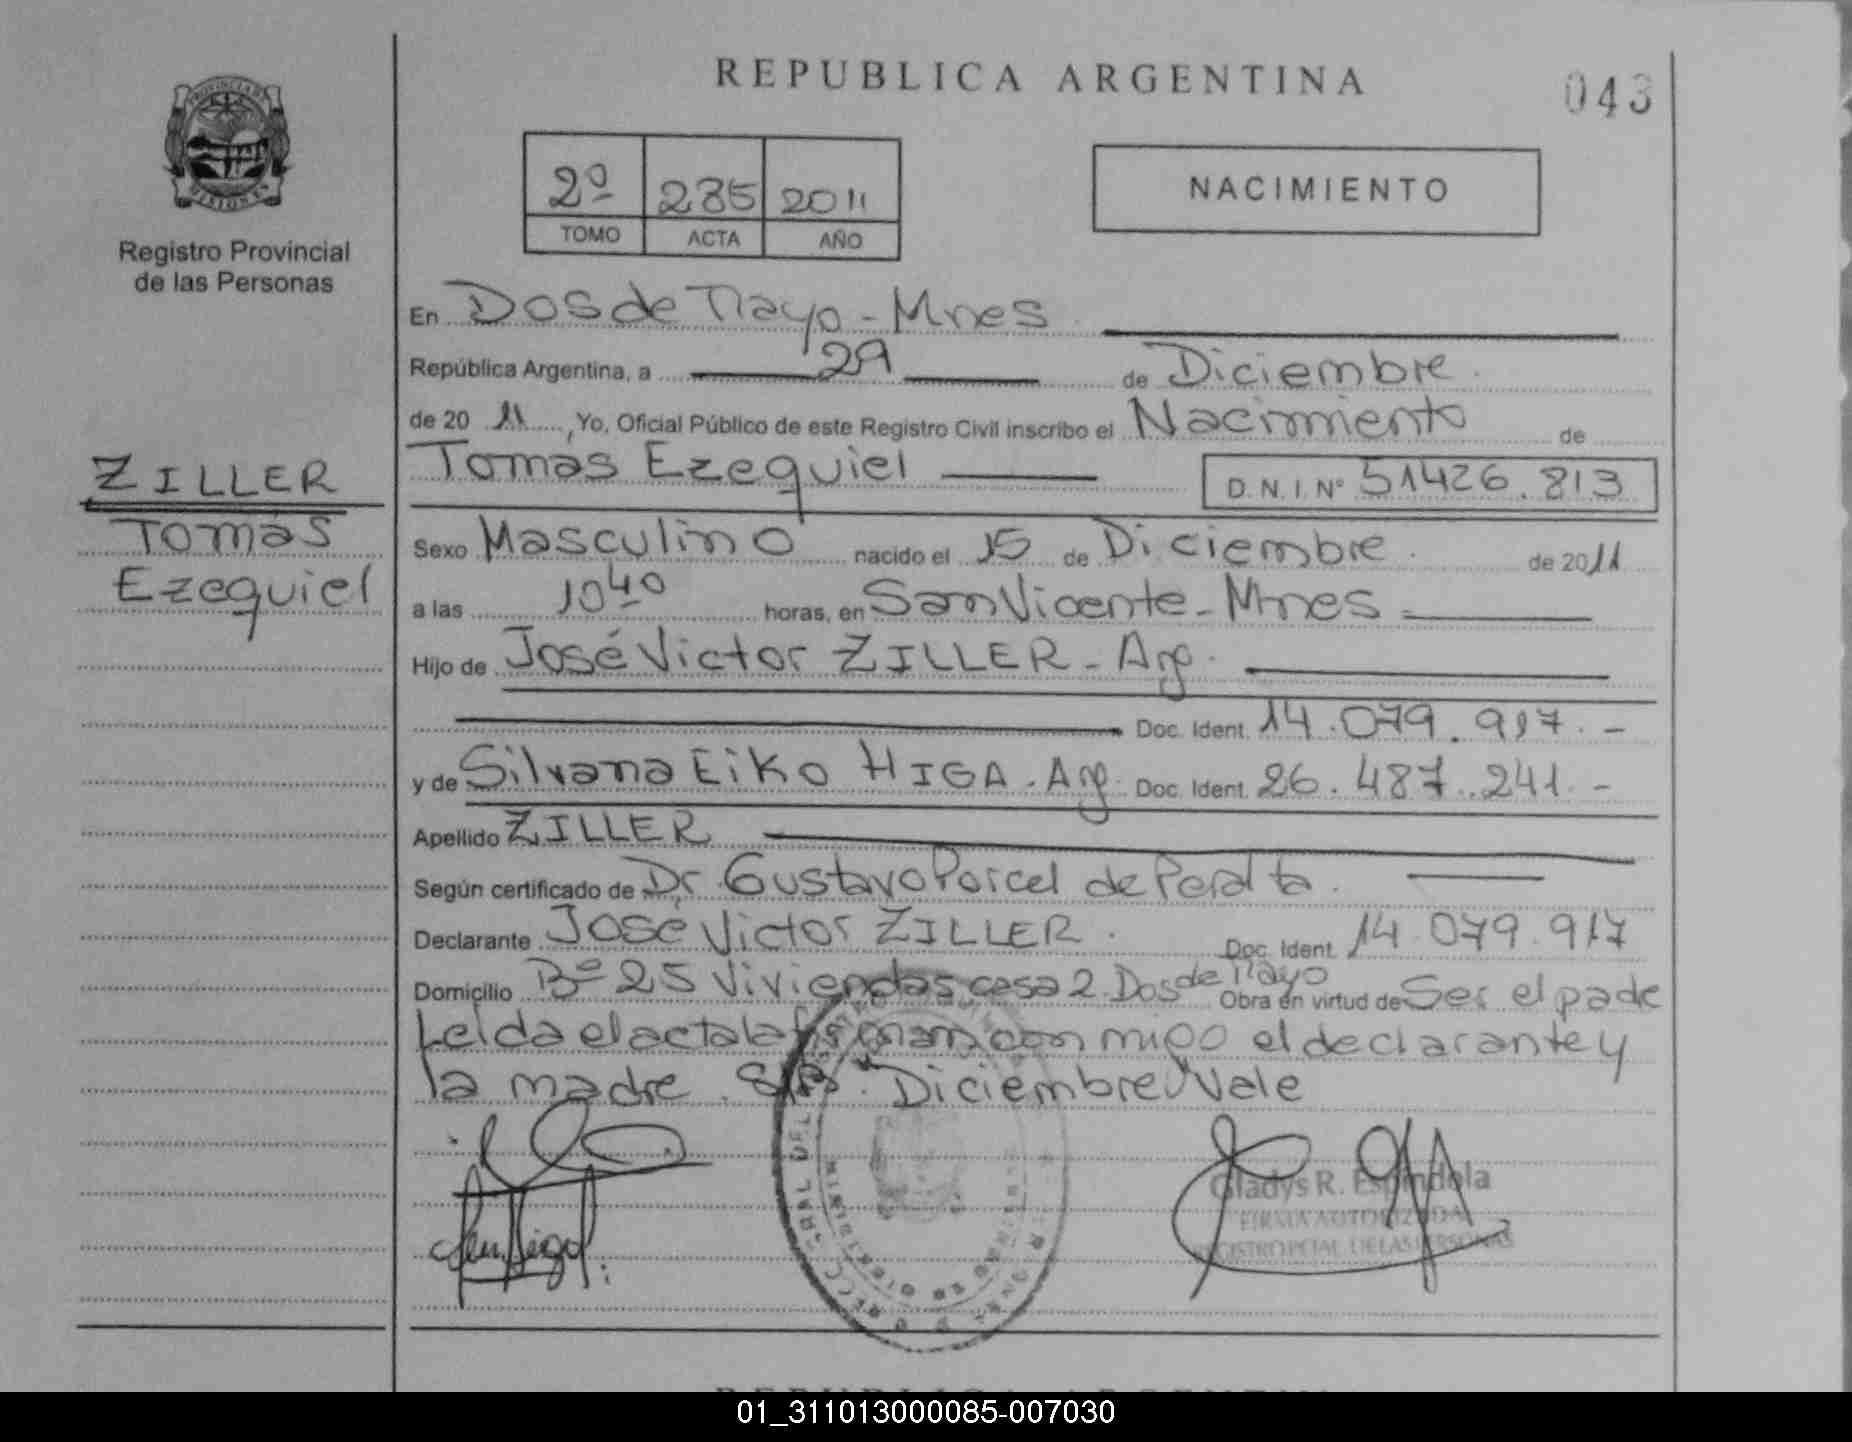 REPUBLICA ARGENTINA
043
PROVINCIA DE
MISIONES
Registro Provincial
de las Personas
2º 285 2011
TOMO ACTA AÑO
NACIMIENTO
En Dos de Mayo - Mnes
República Argentina, a 29 de Diciembre
de 20 11, Yo, Oficial Público de este Registro Civil inscribo el Nacimiento de
Tomas Ezequiel D.N.I. Nº 51426.813
ZILLER
Tomás
Ezequiel
Sexo Masculino nacido el 15 de Diciembre de 2011
a las 10 40 horas, en San Vicente - Mnes
Hijo de José Victor ZILLER - Arg.
Doc. Ident. 14.079.917.-
y de Silvana Eiko HIGA. Arg. Doc. Ident. 26.487.241.-
Apellido ZILLER
Según certificado de Dr. Gustavo Porcel de Peralta.
Declarante José Victor ZILLER. Doc. Ident. 14.079.917
Domicilio Bº 25 Viviendas casa 2. Dos de Mayo Obra en virtud de Ser el padre
Leida el acta la firman conmigo el declarante y
la madre. S/R: Diciembre Vale
Gladys R. Espindola
FIRMA AUTORIZADA
REGISTRO PCIAL DE LAS PERSONAS
01_311013000085-007030